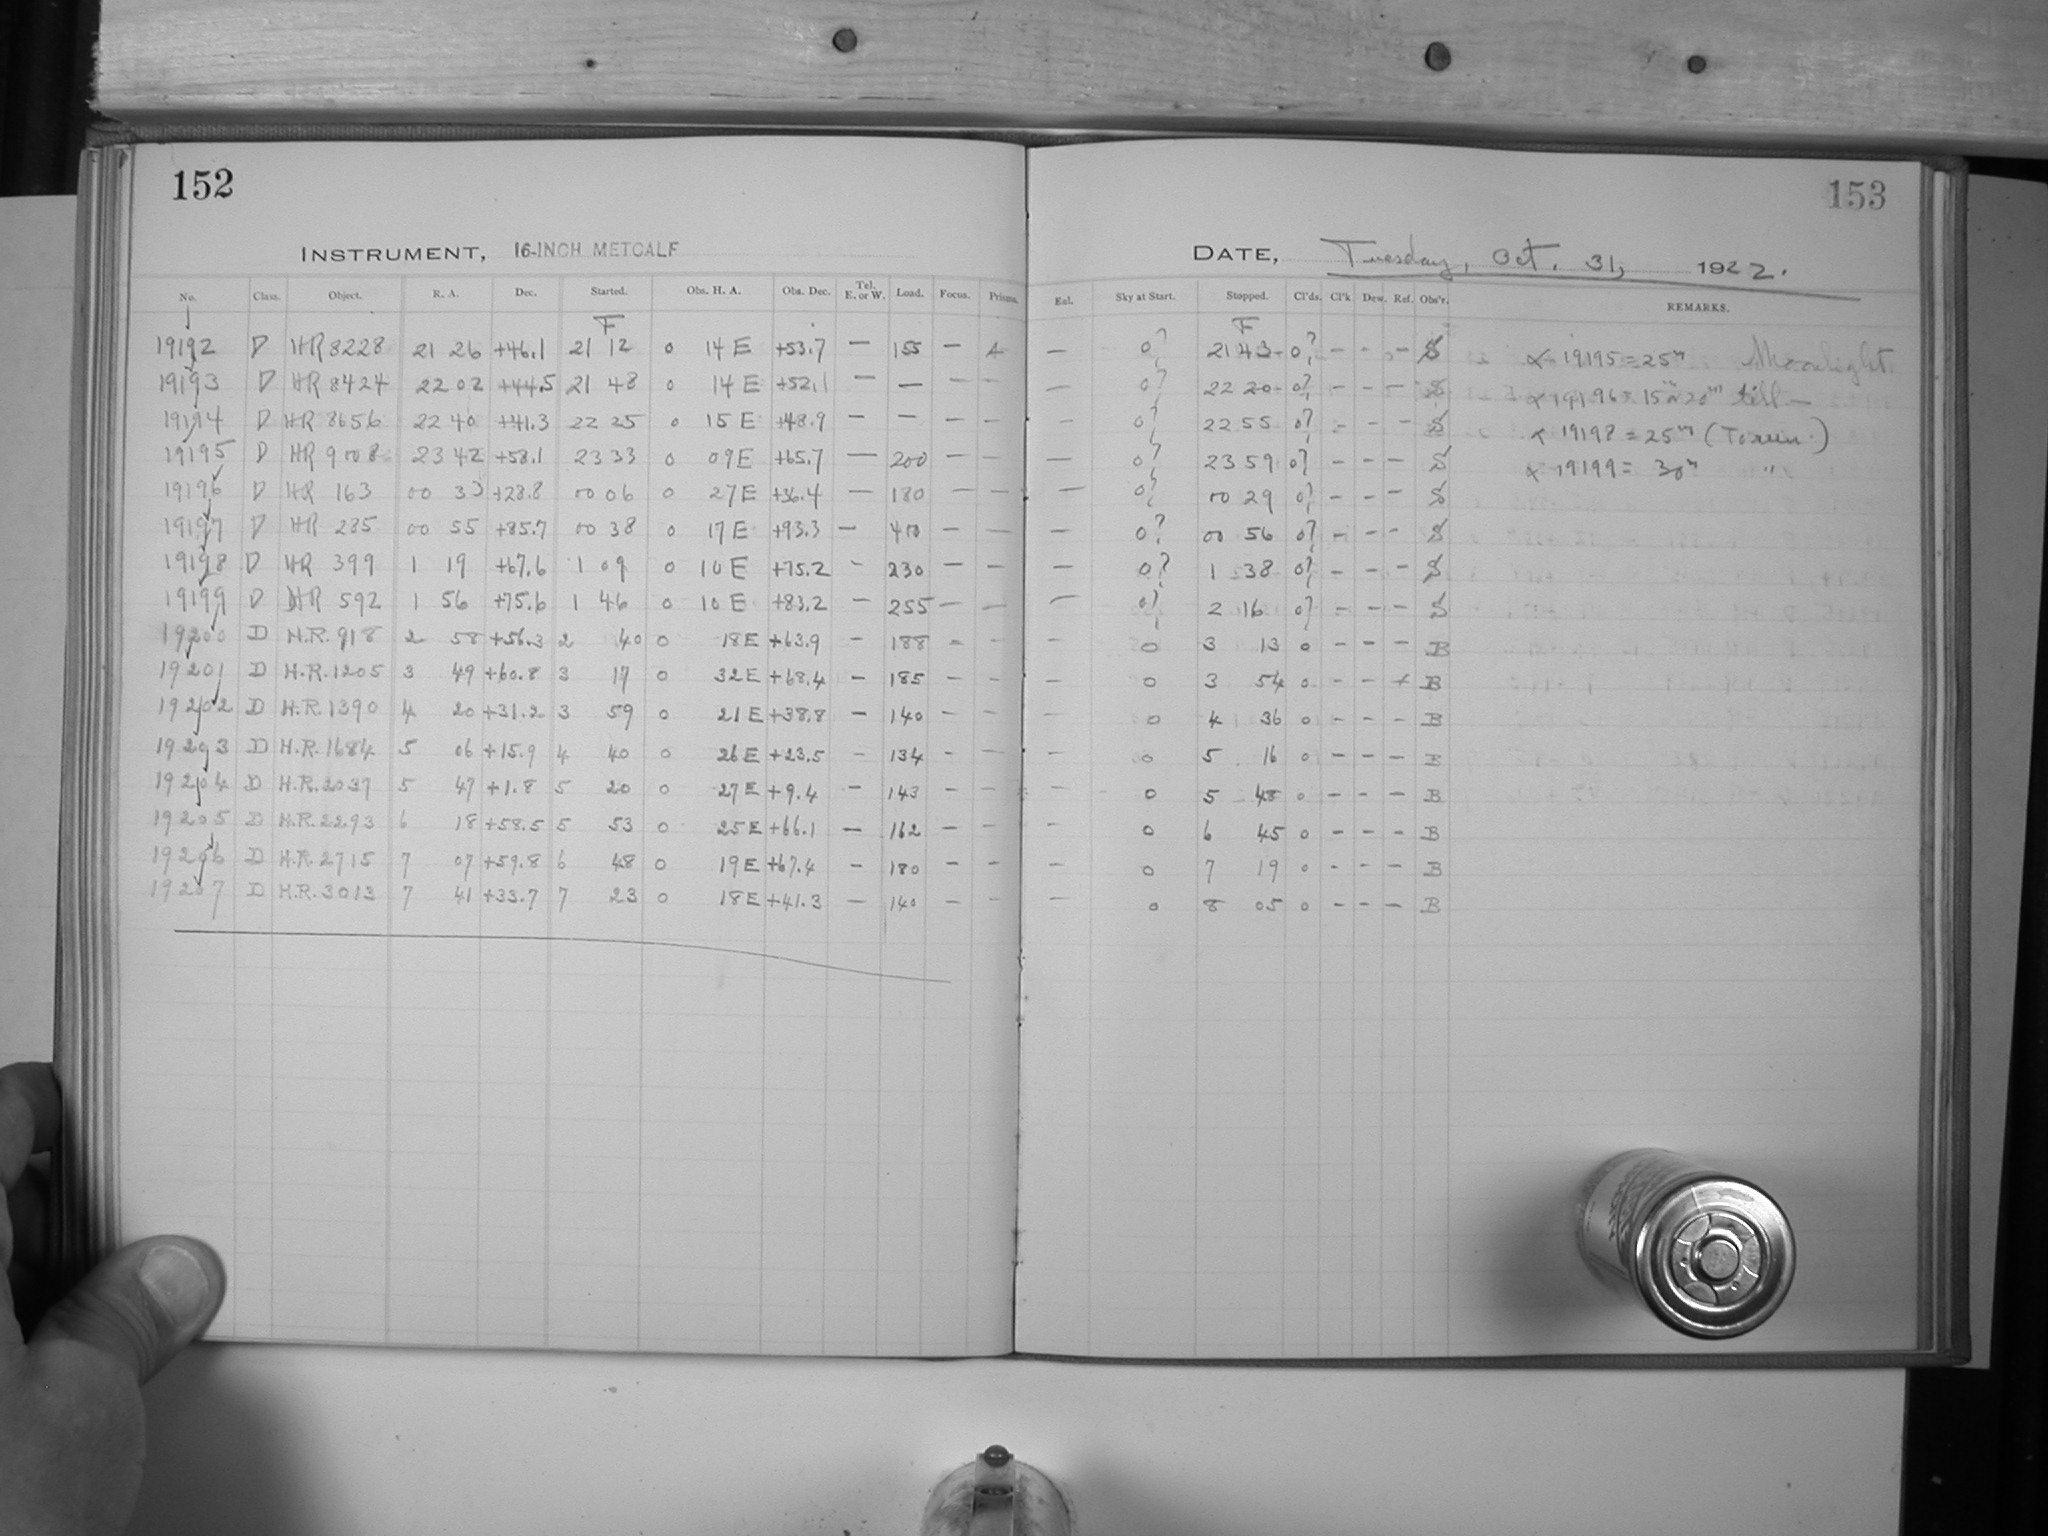 152
INSTRUMENT, 16-INCH METCALF
No. Class. Object. R. A. Dec. Started. Obs. H. A. Obs. Dec. Tel. E. or W. Load. Focus. Prisms.
F
19192 D HR 8228 21 26 +46.1 21 12 0 14 E +53.7 — 155 — A
19193 D HR 8424 22 02 +44.5 21 48 0 14 E +52.1 — — — —
19194 D HR 8656 22 40 +41.3 22 25 0 15 E +48.9 — — — —
19195 D HR 9008 23 42 +58.1 23 33 0 09 E +65.7 — 200 — —
19196 D HR 163 00 33 +28.8 00 06 0 27 E +36.4 — 180 — —
19197 D HR 285 00 55 +85.7 00 38 0 17 E +93.3 — 400 — —
19198 D HR 399 1 19 +67.6 1 09 0 10 E +75.2 - 230 — —
19199 D HR 592 1 56 +75.6 1 46 0 10 E +83.2 — 255 — —
19200 D H.R. 918 2 58 +56.3 2 40 0 18 E +63.9 - 188 - -
19201 D H.R. 1205 3 49 +60.8 3 17 0 32 E +68.4 - 185 - -
19202 D H.R. 1390 4 20 +31.2 3 59 0 21 E +38.8 - 140 - -
19203 D H.R. 1684 5 06 +15.9 4 40 0 26 E +23.5 - 134 - -
19204 D H.R. 2037 5 47 +1.8 5 20 0 27 E +9.4 - 143 - -
19205 D H.R. 2293 6 18 +58.5 5 53 0 25 E +66.1 - 162 - -
19206 D H.R. 2715 7 07 +59.8 6 48 0 19 E +67.4 - 180 - -
19207 D H.R. 3013 7 41 +33.7 7 23 0 18 E +41.3 - 140 - -
153
DATE, Tuesday, Oct. 31, 1922.
Enl. Sky at Start. Stopped. Cl'ds. Cl'k Dew. Ref. Obs'r. REMARKS.
F
— 0? 21 43 0? - - - S α 19195 = 25m Moonlight
— 0? 22 20 0? - - - S α 19196 = 15m or 20m till —
— 0? 22 55 0? - - - S α 19198 = 25m
— 0? 23 59 0? - - - S α 19199 = 30m "
— 0? 00 29 0? - - - S
— 0? 00 56 0? - - - S
— 0? 1 38 0? - - - S
— 0? 2 16 0? - - - S
- 0 3 13 0 - - - B
- 0 3 54 0 - - + B
- 0 4 36 0 - - - B
- 0 5 16 0 - - - B
- 0 5 48 0 - - - B
- 0 6 45 0 - - - B
- 0 7 19 0 - - - B
- 0 8 05 0 - - - B